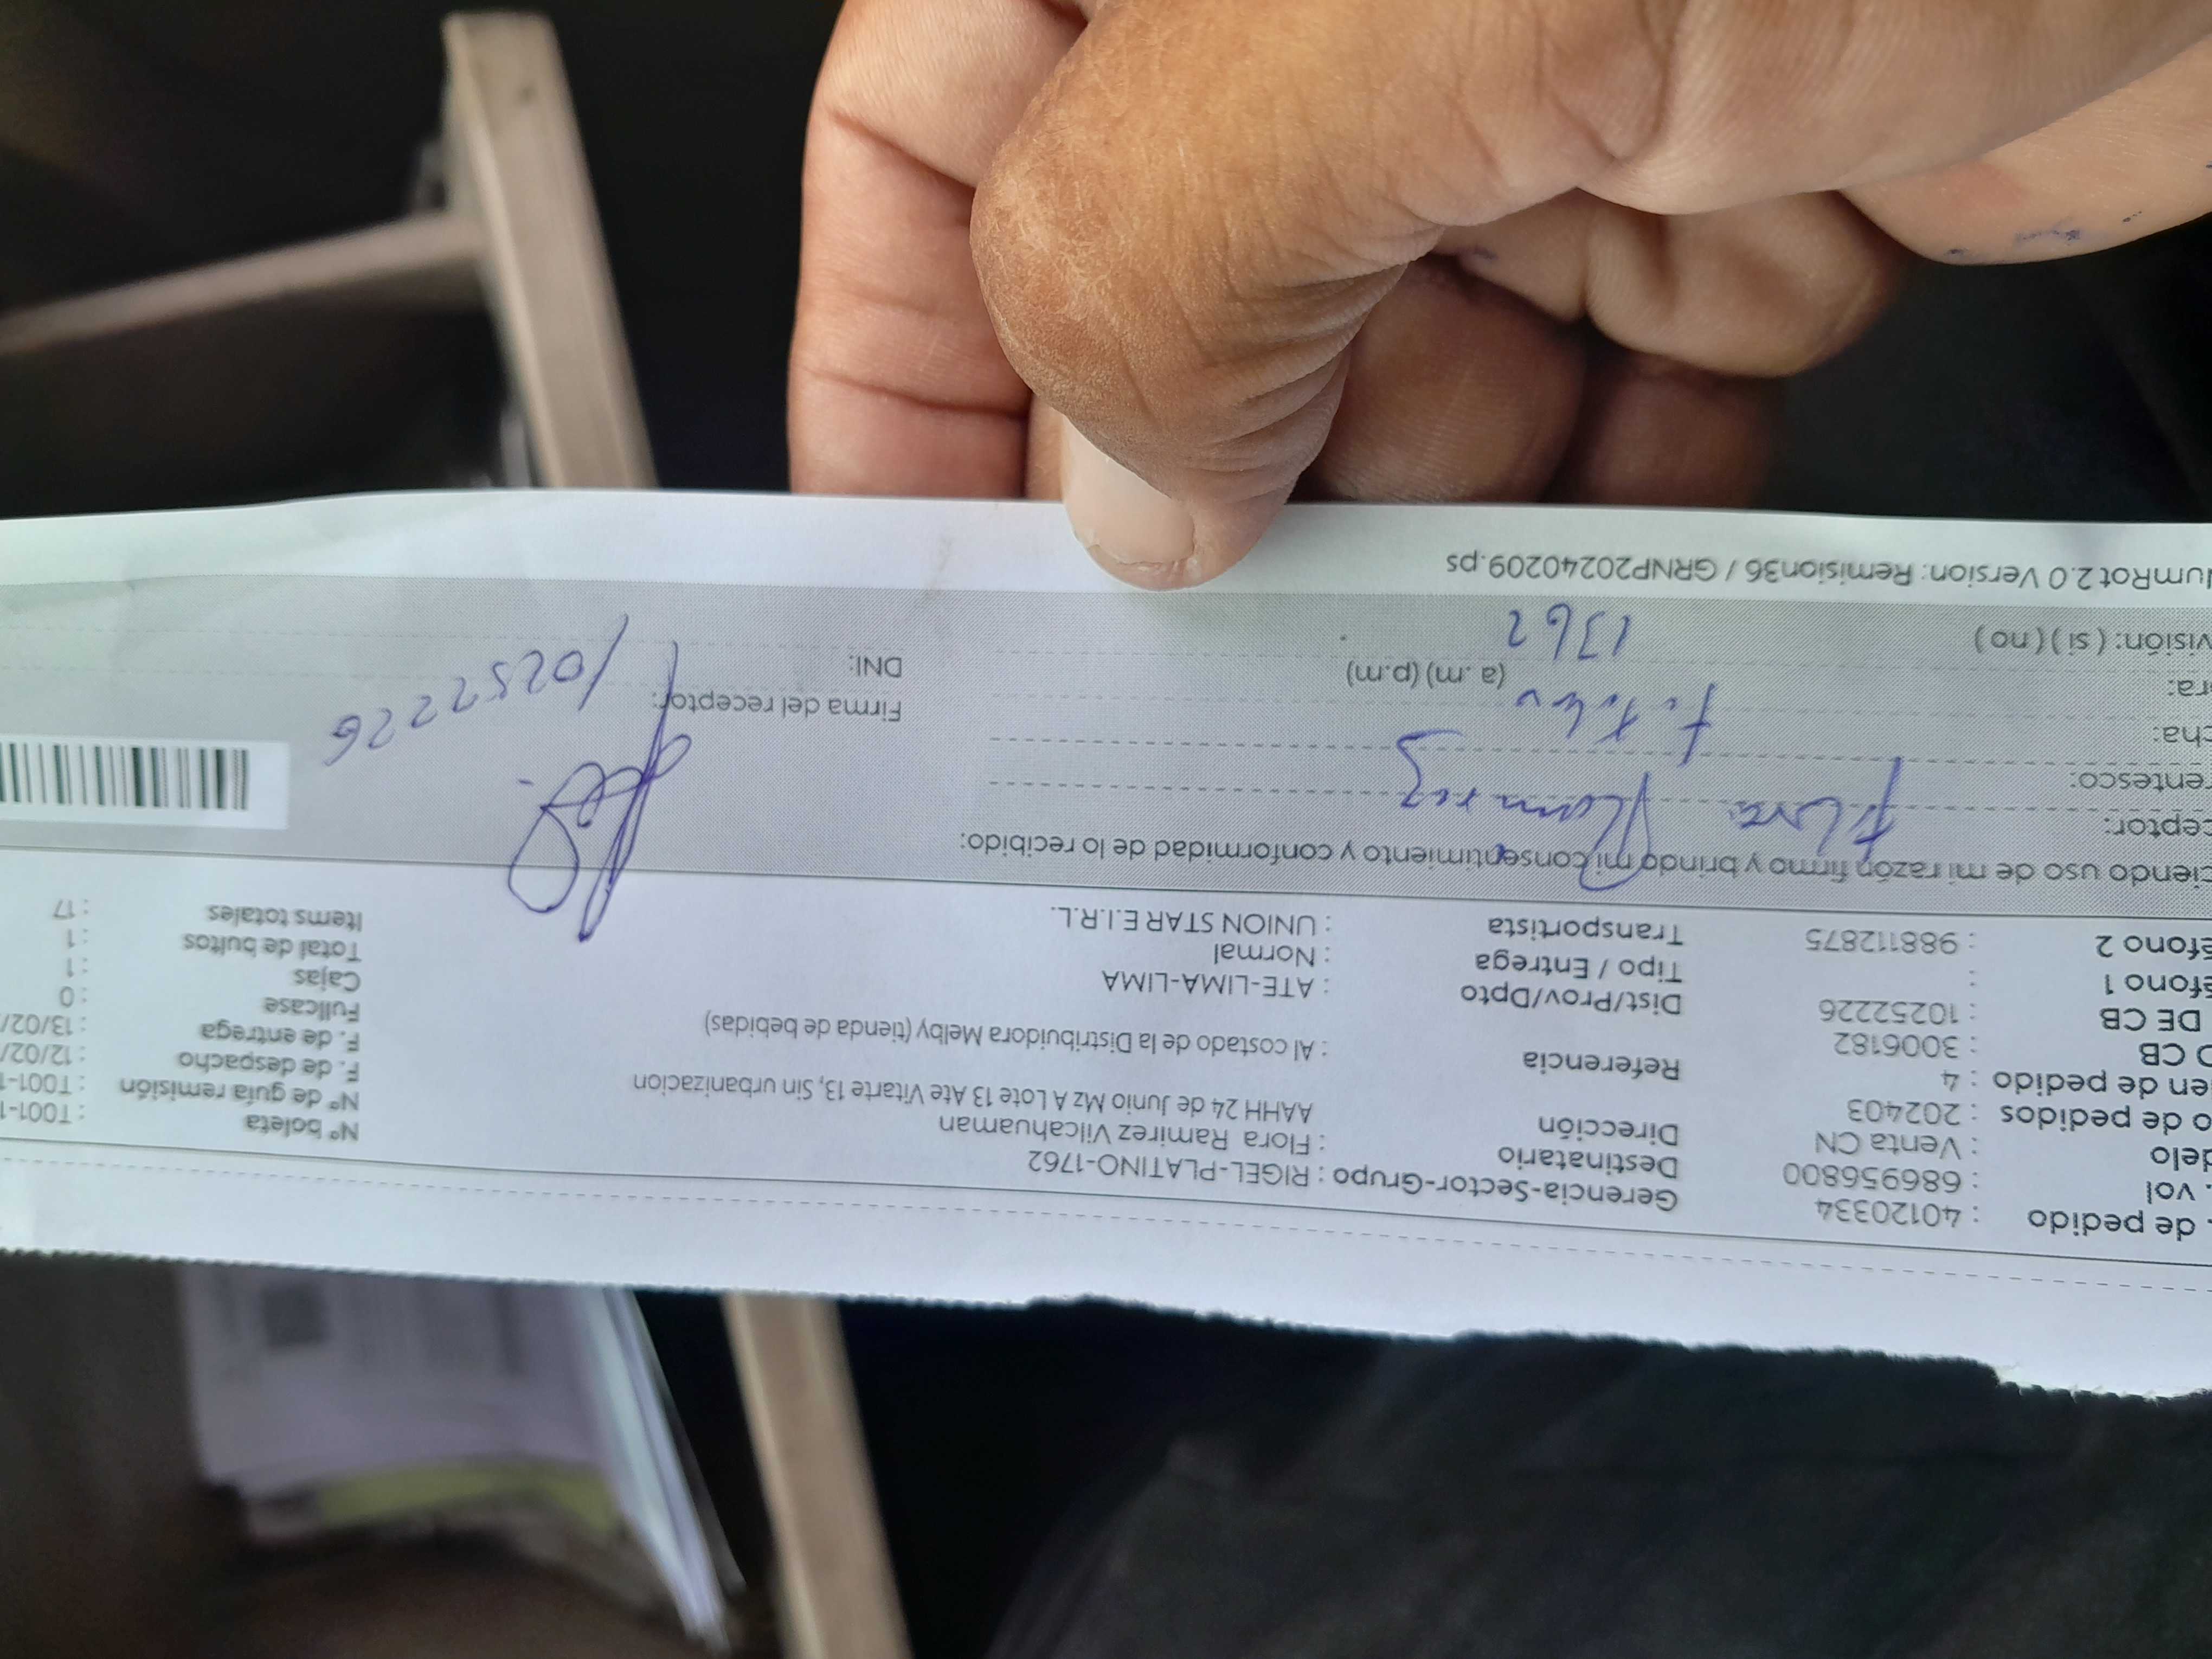 . de pedido : 40120334 Gerencia-Sector-Grupo : RIGEL-PLATINO-1762
. vol : 686956800 Destinatario : Flora Ramirez Vilcahuaman Nº boleta : T001-1
delo : Venta CN Dirección AAHH 24 de Junio Mz A Lote 13 Ate Vitarte 13, Sin urbanizacion Nº de guía remisión : T001-1
o de pedidos : 202403 F. de despacho : 12/02/
en de pedido : 4 Referencia : Al costado de la Distribuidora Melby (tienda de bebidas) F. de entrega : 13/02/
O CB : 3006182 Fullcase : 0
DE CB : 10252226 Dist/Prov/Dpto : ATE-LIMA-LIMA Cajas : 1
éfono 1 : Tipo / Entrega : Normal Total de bultos : 1
éfono 2 : 988112875 Transportista : UNION STAR E.I.R.L. Items totales : 17
ciendo uso de mi razón firmo y brindo mi consentimiento y conformidad de lo recibido:
ceptor: Flora Ramirez
entesco:
cha: Firma del receptor:
ra: (a .m) (p.m) DNI: 10252226
visión: ( si ) ( no ) 1362
NumRot 2.0 Version: Remision36 / GRNP20240209.ps